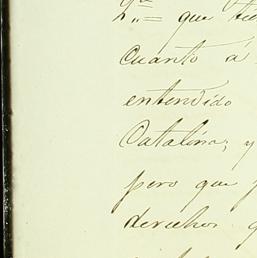 2ª = que
cuanto á
entendido
Catalina; y
pero que
derechos